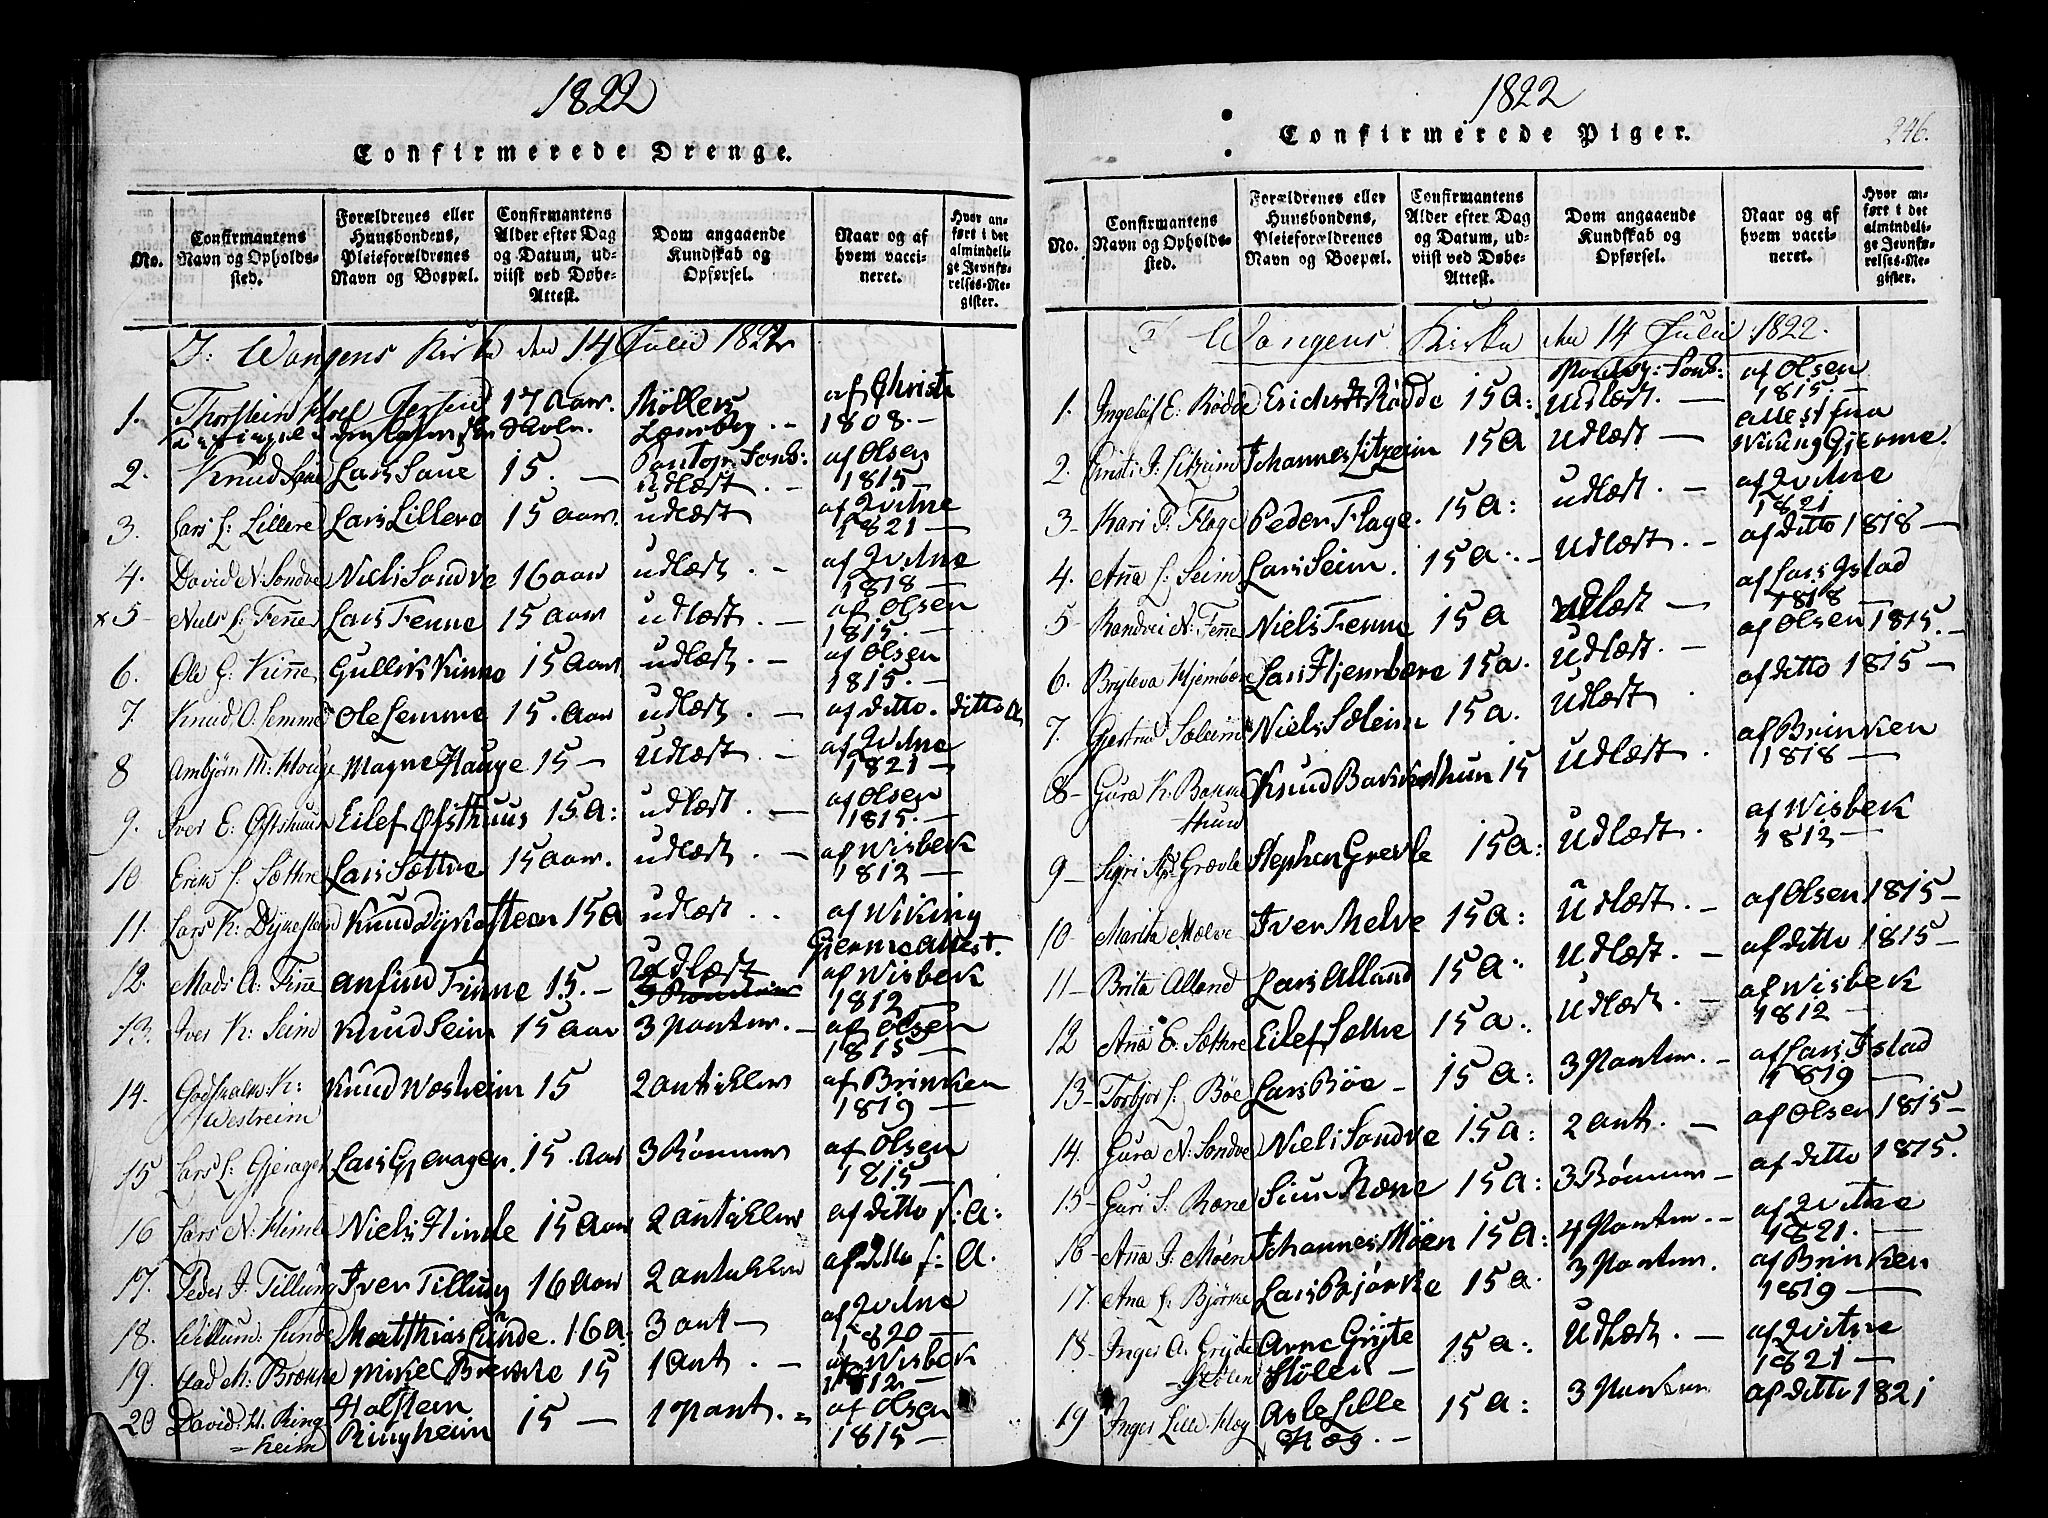 1822
Confirmerede Drenge.
No.
Confirmantens Navn og Opholdssted.
Forældrenes eller Huusbondens, Pleieforældrenes Navn og Boepæl.
Confirmantens Alder efter Dag og Datum, udviist ved Døbe-Attest.
Dom angaaende Kundskab og Opførsel.
Naar og af hvem vaccineret.
Hvor anført i det almindelige Jevnførelses-Register.
I: Wangens Kirke den 14 Julii 1822
1. Thorstein 17 Aar. Møllers Lærebog. - af Christi 1808. -
2. Knud Saue Lars Saue 15. - Pontop: Sond: udlæst. - af Olsen 1815 -
3. Lars L: Lillere Lars Lillere 15 aar. udlæst af Qvitne 1821 -
4. David N: Sondve Niels Sondve 16 aar udlæst. - af Qvitne 1818 -
x 5 - Niels L: Fenne Lars Fenne 15 aar udlæst. - af Olsen 1815. -
6. Ole G: Kinne Gullik Kinne 15 Aar udlæst. - af Olsen 1815. -
7. Knud O: Lemme Ole Lemme 15. Aar udlæst. - af ditto. ditto A
8 Ambjørn M: Houge Magne Hauge 15 - Udlæst - af Qvitne 1821 -
9. Iver E: Øfsthuus Eilef Øfsthuus 15 A: udlæst. - af Olsen 1815. -
10. Erik L: Sættre Lars Sættre 15 aar. udlæst. - af Wisbek 1812 -
11. Lars K: Dykesteen Knud Dykesteen 15 A udlæst. . af Wiking Gjerme Attest.
12. Mads A: Finne Anfind Finne 15. - Udlæst af Wisbek 1812 -
13. Iver K: Seim Knud Seim 15 aar 3 Panter. - af Olsen 1815 -
14. Godskalk K: Westreim Knud Westreim 15 2 antikler af Brinken 1819 -
15 Lars L: Gjerager Lars Gjerager. 15. Aar 3 Rømmer af Olsen 1815 -
16 Lars N: Himle Niels Himle 15 Aar 2 antikler af ditto f: A:
17. Peder I: Tillung Iver Tillung 16 Aar 2 antikler af ditto f: A.
18. Willum: Lunde Matthias Lunde. 16 a: 3 ant - af Qvitne 1820 -
19. Gad M: Brække Mikel Brække 15 1 Ant. - af Wisbek 1812 -
20 David H: Ringheim Holstein Ringheim 15 - 1 pant. - af Olsen 1815 -
1822
Confirmerede Piger.
246.
No.
Confirmantens Navn og Opholdssted.
Forældrenes eller Huusbondens, Pleieforældrenes Navn og Boepæl.
Confirmantens Alder efter Dag og Datum, udviist ved Døbe-Attest.
Dom angaaende Kundskab og Opførsel.
Naar og af hvem vaccineret.
Hvor anført i det almindelige Jevnførelses-Register.
I Wangens Kirke den 14 Julii 1822.
1. Ingeleif E: Rødde Erich Rødde 15 A: Pontop: Sond: Udlæst. - af Olsen 1815. -
2. Kristi I: Litzeim Johannes Litzeim 15 A Udlæst - Attest fra Wiking Gjerme.
3 - Kari P: Flage Peder Flage. 15 A: udlæst. - af Qvitne 1821
4. Anna L: Seim Lars Seim. 15 a. - Udlæst. - af ditto 1818 -
5 - Randvei N: Fenne Niels Fenne 15 A Udlæst - af Lars Istad 1818 -
6. Bryteva Hjembere Lars Hjembere 15 a. Udlæst. - af Olsen 1815. -
7. Gjertrud Sæleim Niels Sæleim 15 a. Udlæst af ditto 1815 -
8 - Gura K: Bakkethuun Knud Bakkethun 15 Udlæst. af Brinken 1818 -
9 - Sigri St: Grævle Stephen Grevle 15 A: Udlæst. af Wisbek 1812 -
10 - Marita Mælve Iver Melve 15 A: Udlæst. - af Olsen 1815 -
11 - Brita Alland Lars Alland 15 A: Udlæst. - af ditto 1815 -
12 Anna E: Sættre Eilef Sættre 15 A: Udlæst - af Wisbek 1812 -
13 - Torbjor L: Bøe Lars Bøe - 15 A: 3 Panter. - af Lars Istad 1819 -
14. Gura N: Sondve Niels Sondve 15 A: 2 ant. - af Olsen 1815 -
15 - Guri S: Ræne Siur Ræne 15 A: 3 Rømmer - af ditto 1815.
16 - Anna I: Møen Johannes Møen 15 A: 4 Panter. - af Qvitne 1821. -
17. Ana L: Bjørke Lars Bjørke 15 a. 3 Panter. af Brinken 1819 -
18 - Inger A: Gryte Stølen Arne Gryte Stølen - 15 a: Udlæst. - af Qvitne 1821 -
19 Inger Lille Hæg Asle Lille Hæg. - 15 A: 3 Panter af ditto 1821